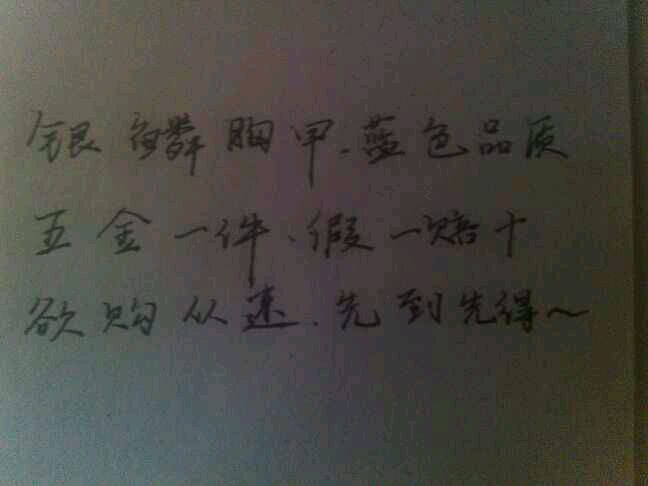 银鳞胸甲.蓝色品质
五金一件、假一赔十
欲购从速.先到先得~